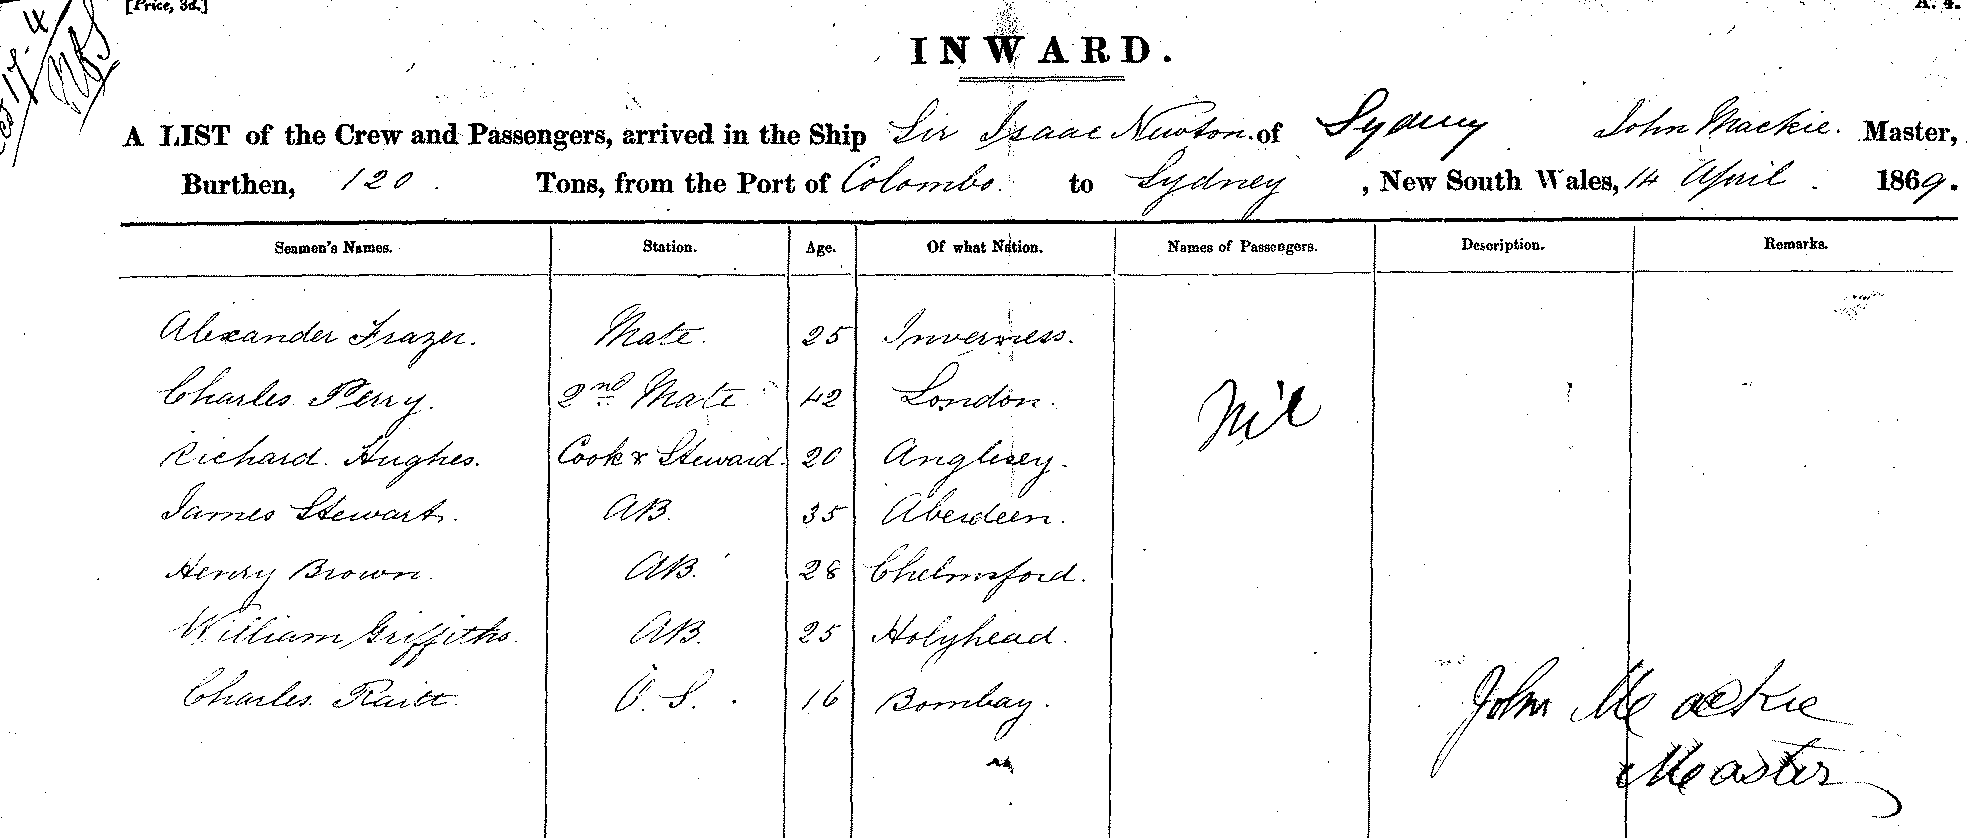 [Price, 3d.]
A. 4.
17.4
INWARD.
A LIST of the Crew and Passengers, arrived in the Ship Sir Isaac Newton. of Sydney John Mackie. Master,
Burthen, 120. Tons, from the Port of Colombo. to Sydney, New South Wales, 14 April. 1869.
Seamen's Names. Station. Age. Of what Nation. Names of Passengers. Description. Remarks.
Alexander Frazer. Mate. 25 Inverness.
Charles Perry. 2nd Mate 42 London. Nil
Richard Hughes. Cook & Steward. 20 Anglesey.
James Stewart. AB. 35 Aberdeen.
Henry Brown. AB. 28 Chelmsford.
William Griffiths. AB. 25 Holyhead.
Charles Raitt. O.S. 16 Bombay.
John Mackie
Master